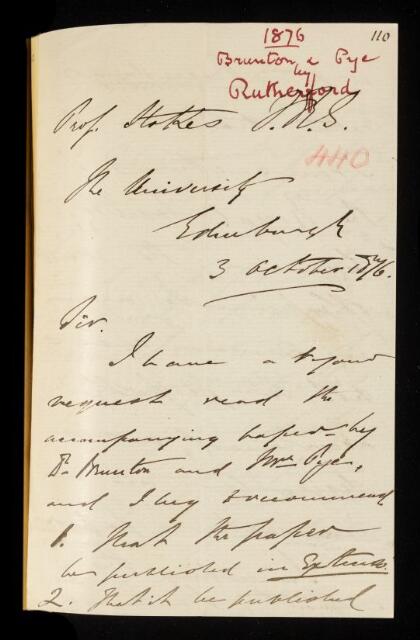 110
1876
Brunton & Pye
by
Rutherford
Prof. Stokes F.R.S.
440
The University
Edinburgh
3 October 1876.
Sir.
I have at your
request read the
accompanying paper by
Dr. Brunton and Mr. Pye,
and I beg to recommend
1. That the paper
be published in Extenso.
2. That it be published